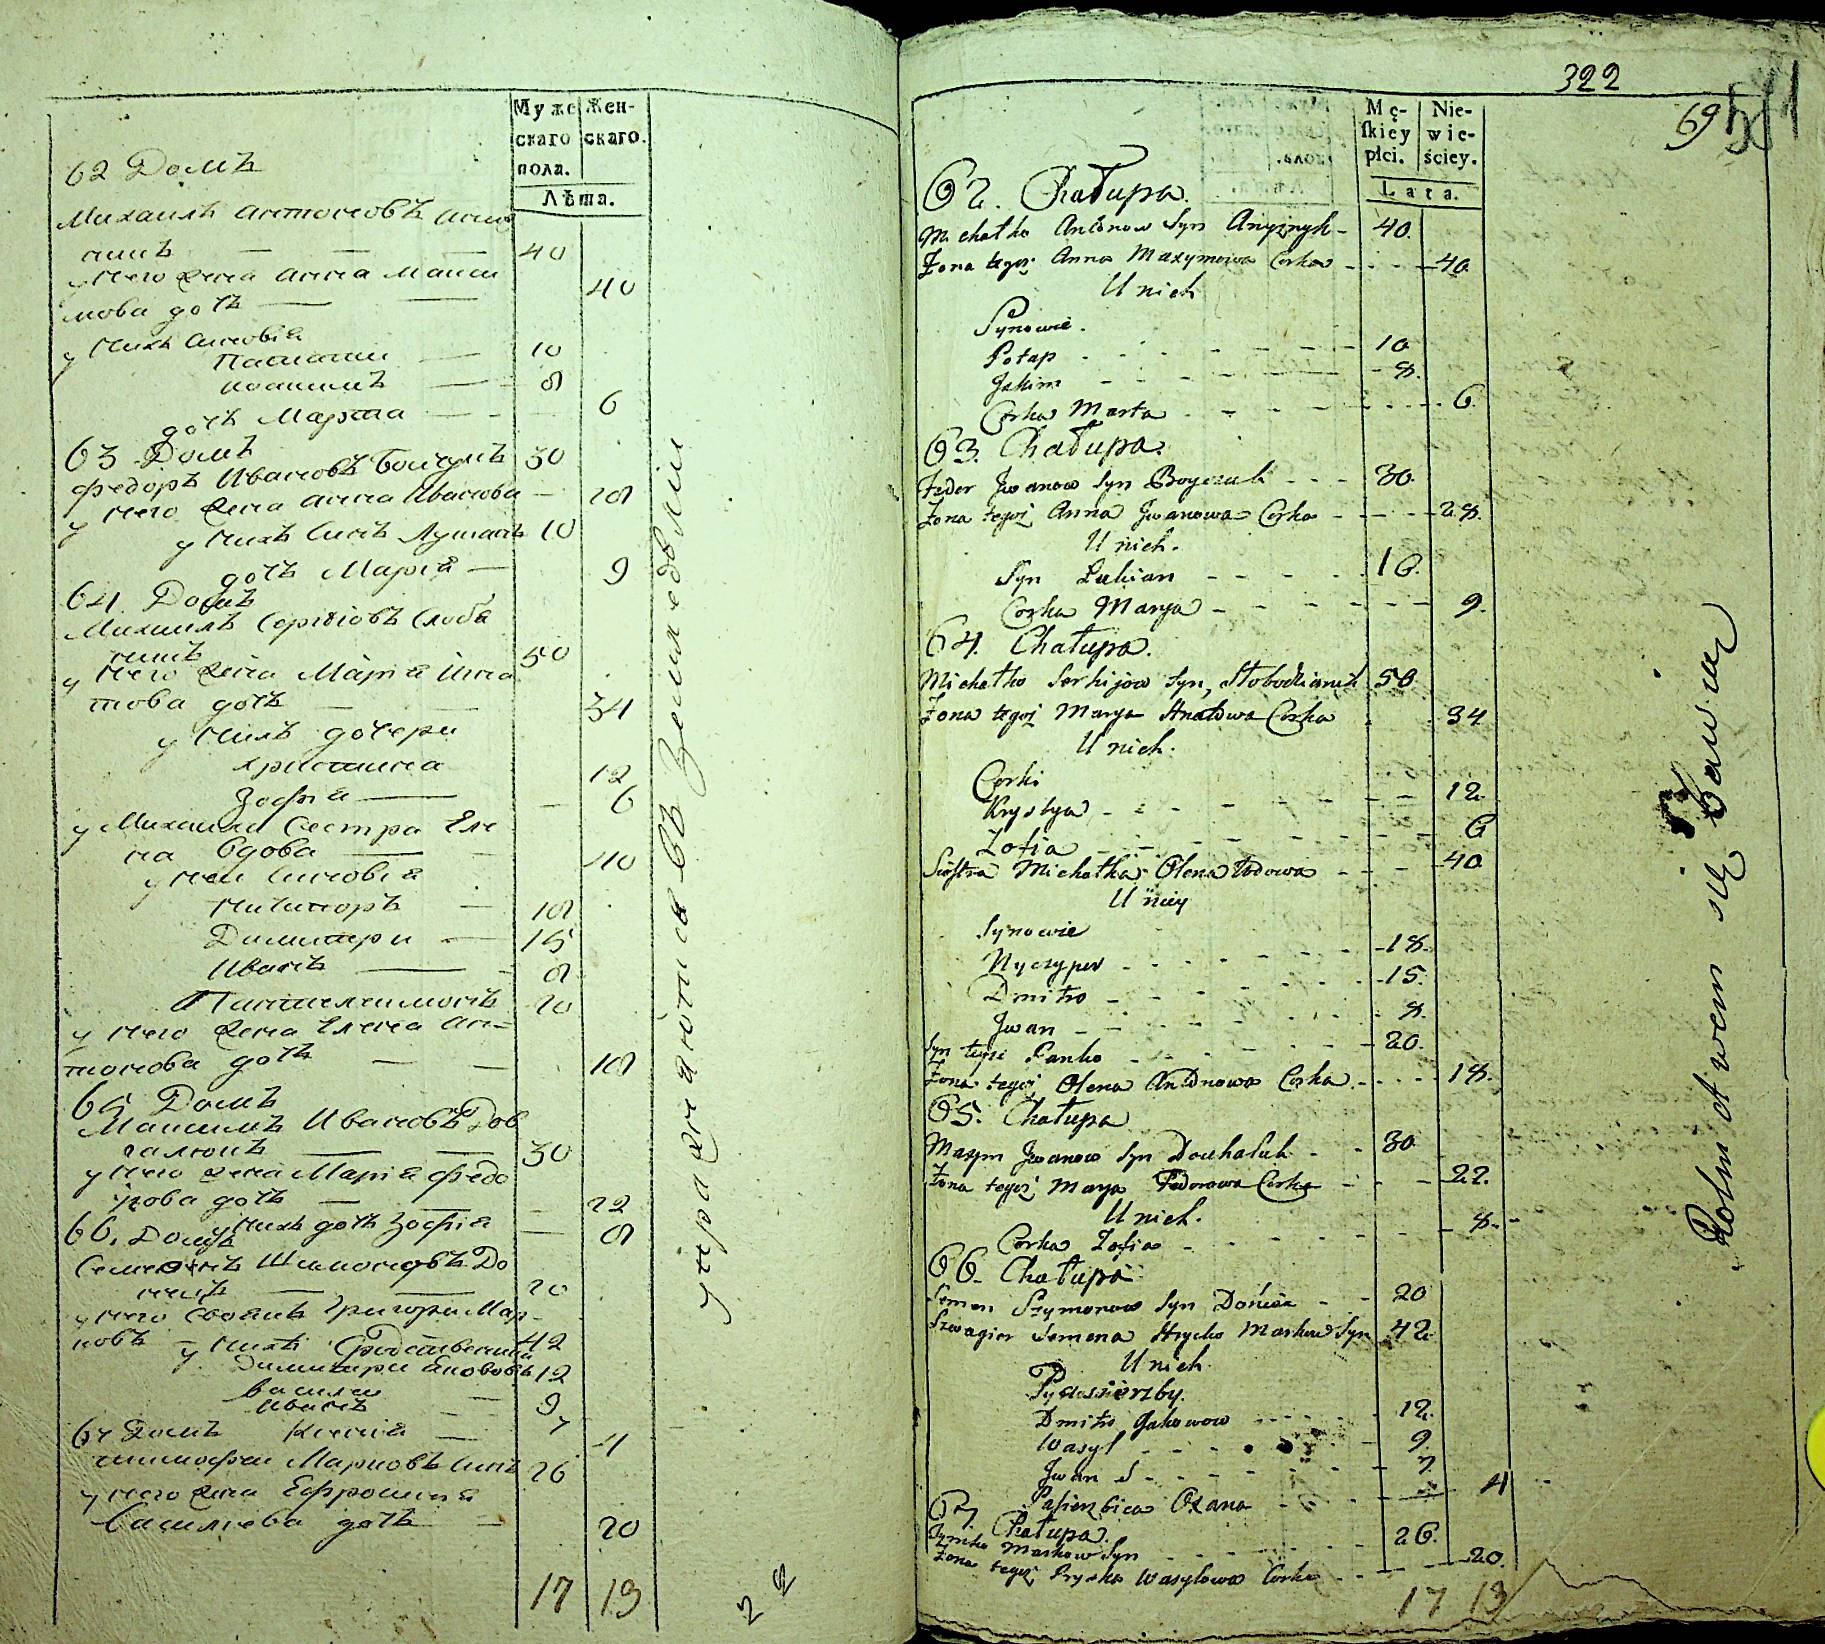 Муже Жен-
скаго скаго.
пола.
Лѣта.
62 Домъ
Михаилъ Антоновъ
40
у него жена Анна Макси
мова дочь 40
у нихъ синовія
10
Иоакимъ 8
дочь Марта 6
63 Домъ
Федоръ Ивановъ Бойчукъ 30
у него жена Анна Иванова 28
у нихъ синъ Лукианъ 10
дочь Марія 9
64 Домъ
Михаилъ Сергіовъ Слобо
50
у него жена Марія Игна
това дочь 34
у нихъ дочери
Христина 12
Зофія 6
у Михаила сестра Еле
на вдова 40
у ней синовія
Никифоръ 18
Димитри 15
Иванъ 8
Пантелеимонъ 20
у него жена Елена Ан-
тонова дочь 18
65 Домъ
Максимъ Ивановъ Дов
галюкъ 30
у него жена Марія Федо
рова дочь 22
у нихъ дочь Зофія 8
66. Домъ
Семенъ Шимоновъ До
20
у него своякъ Григори Мар-
ковъ 42
у нихъ сродственики
Димитри Якововъ 12
Василии 9
Иванъ 7
Ксенія 4
67 Домъ
Тимофеи Марковъ синъ 26
у него жена Ефросинія
Василіева дочь 20
17 19
упражняются въ земледѣліи
22
322
69
581
Mę- Nie-
skiey wie-
płci. ściey.
Lata.
62. Chałupa.
Michałko Antonow Syn 40.
Żona tegoż Anna Maxymowa Corka 40
U nich
Synowie.
Potap 10
Jakim 8.
Corka Marta 6.
63. Chałupa.
Fedor Jwanow Syn Boyczuk 30.
Żona tegoż Anna Jwanowa Corka 28.
U nich.
Syn Łukian 10.
Corka Marya 9.
64. Chałupa.
Michałko Serhijow Syn, Słobodzianik 50
Żona tegoż Marya Hnatowa Corka 34
U nich.
Corki
Krystya 12
Zofia 6
Siostra Michałka Olena Wdowa 40
U niey
Synowie
Nyczypor 18.
Dmitro 15.
Jwan 8.
Syn teyże Panko 20.
Żona tegoż Olena Antonowa Corka 18.
65. Chałupa
Maxym Jwanow Syn Douhaluk 30
Żona tegoż Marya Fedorowa Corka 22.
U nich.
Corka Zofia 8.
66. Chałupa
Semen Szymonow Syn 20
Szwagier Semena Hrycko Markow Syn 42
U nich.
Pasierzby.
Dmitro Jakowow 12.
Wasyl 9.
Jwan 7
Pasierbica Oxana 4
67. Chałupa.
Tymko Markow Syn 26.
Żona tegoż Pryska Wasylowa Corka 20.
17 19
Rolnictwem się Bawiący